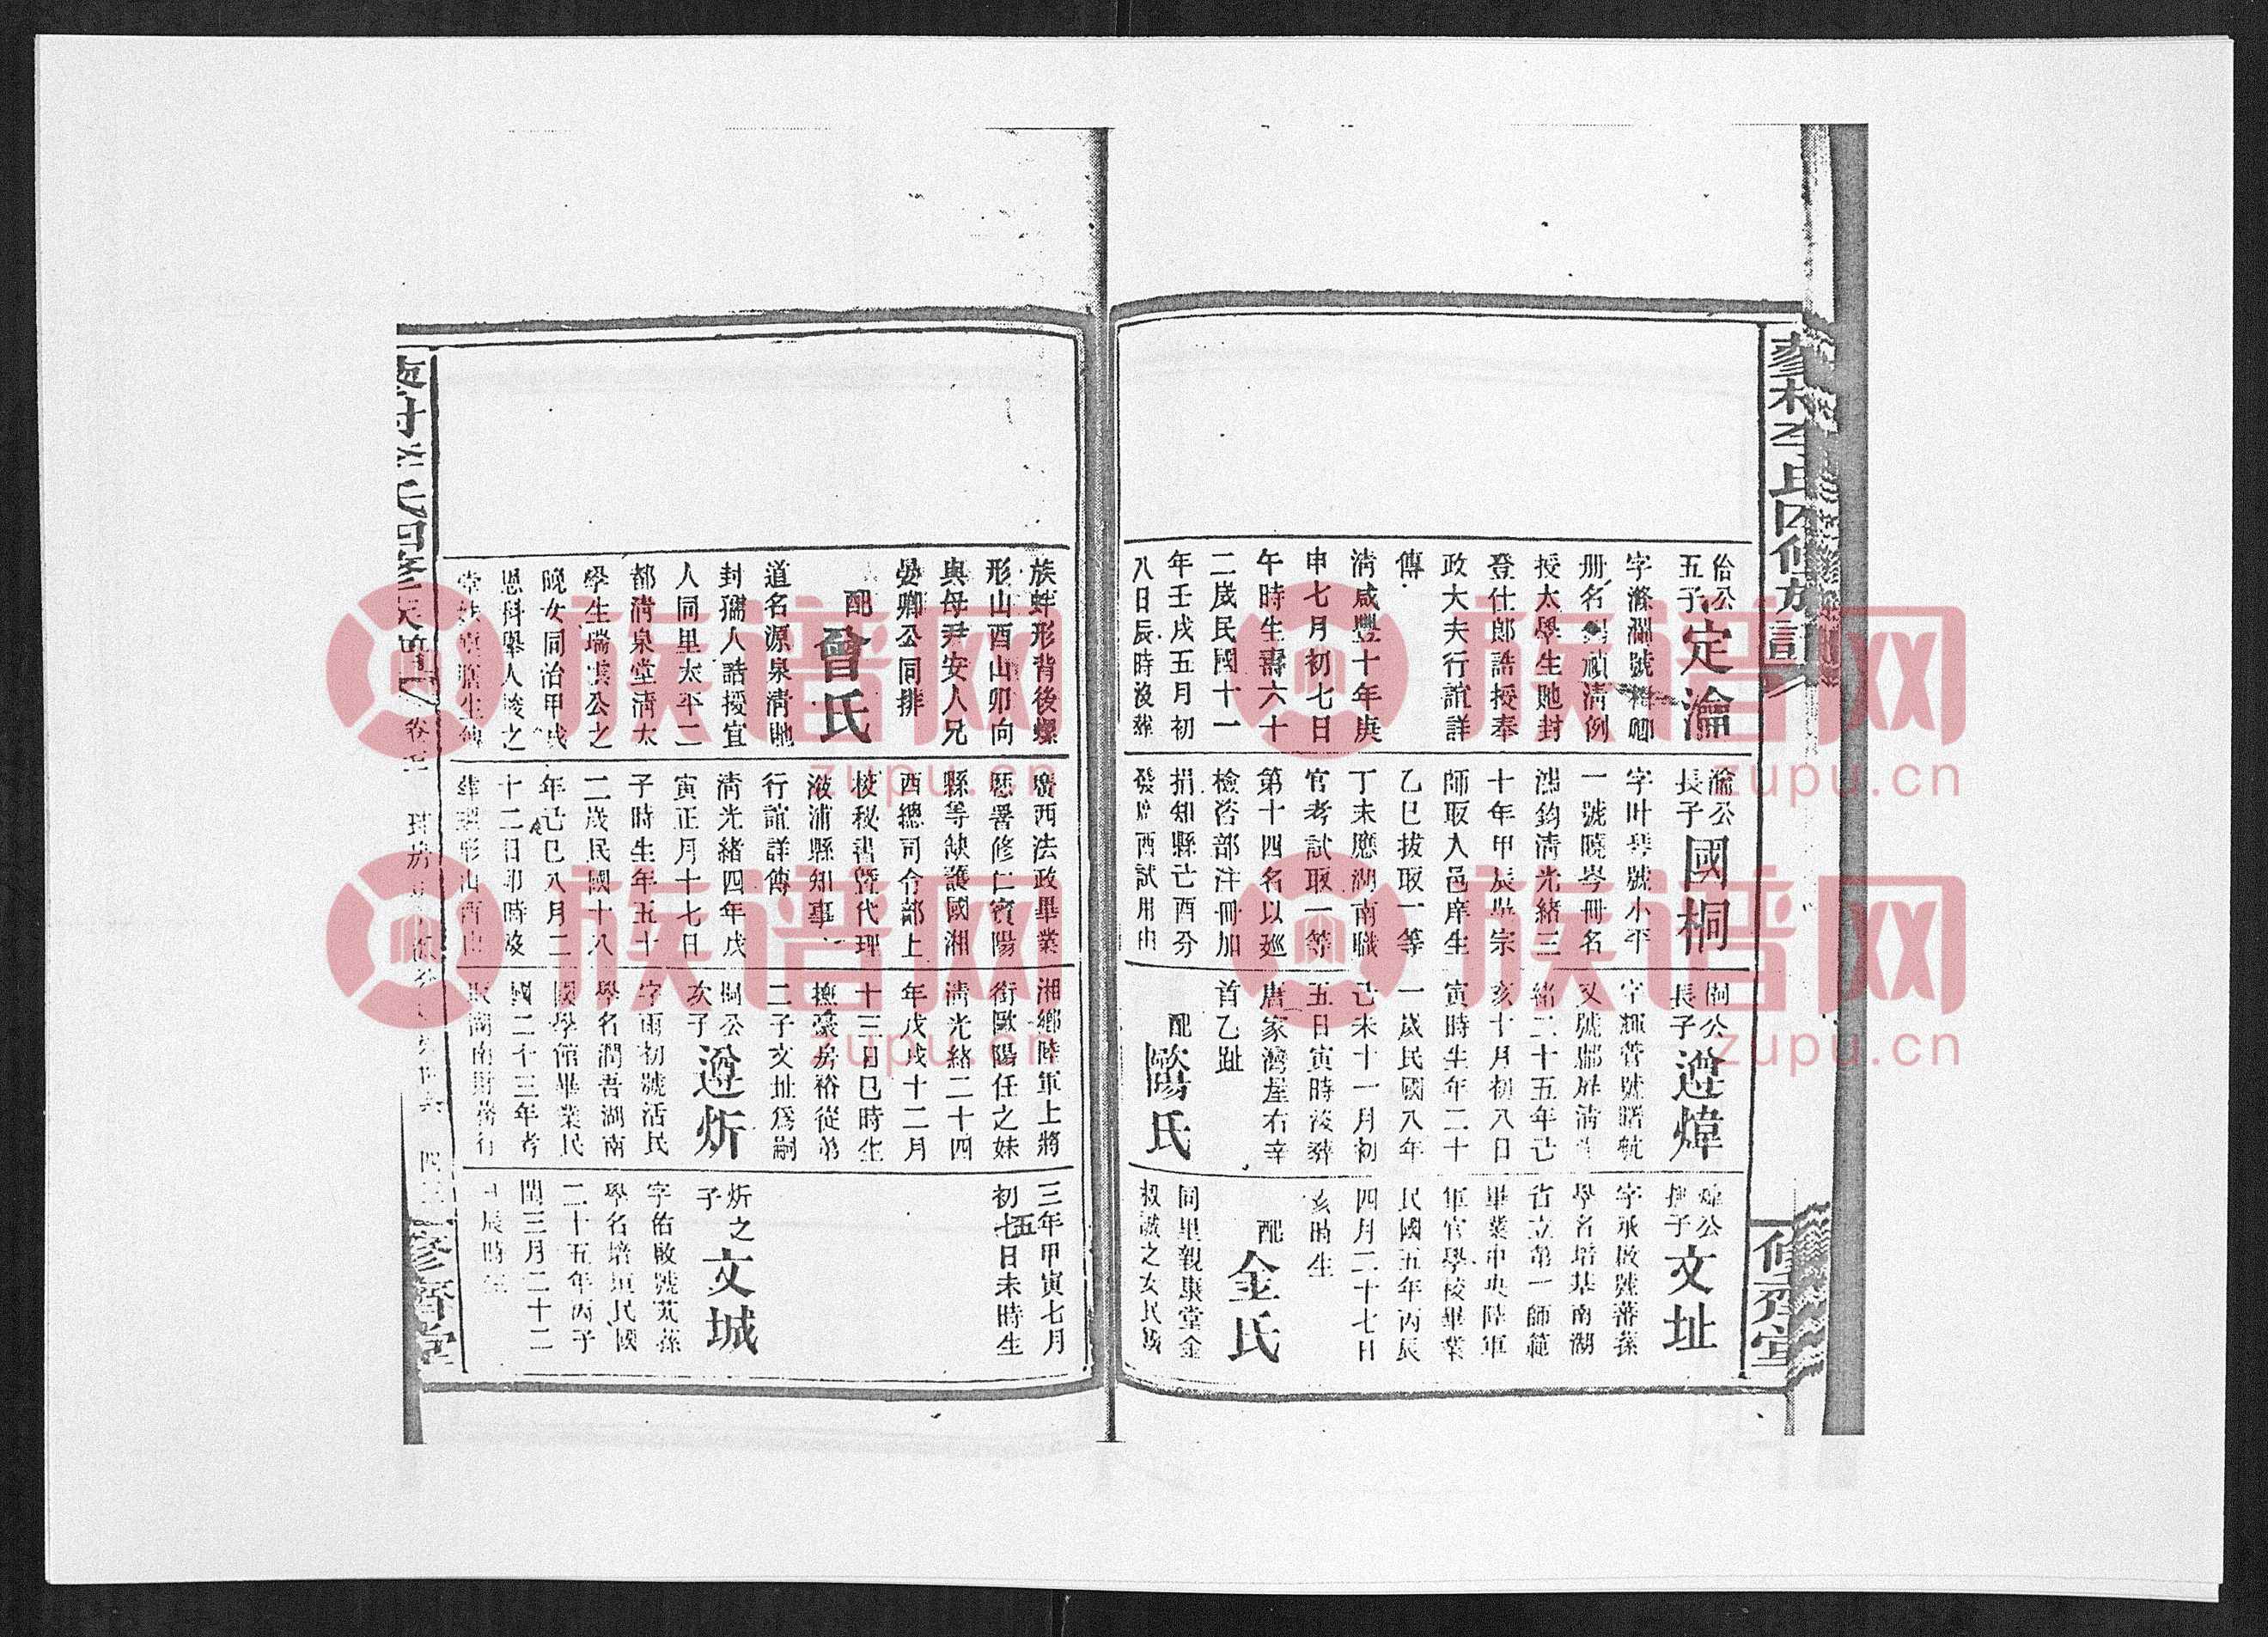 佁公
五子
定瀹
字滌瀾號
册名 禎清例
授太學生貤封
登仕郎誥授奉
政大夫行誼詳
傳
清咸豐十年庚
申七月初七日
午時生壽六十
二歲民國十一
年壬戌五月初
八日辰時沒葬
瀹公
長子
國桐
字叶琴號小平
一號曉岑冊名
鴻鈞清光緒三
十年甲辰吳宗
師取入邑庠生
乙巳拔取一等
丁未應湖南職
官考試取一等
第十四名以巡
檢咨部注冊加
捐知縣己酉分
發廣西試用由
桐公
長子
遵煒
字輝萱號曙航
又號鄰屏清光
緒二十五年己
亥十月初八日
寅時生年二十
一歲民國八年
己未十一月初
五日寅時沒葬
唐家灣屋右辛
首乙趾
配
歐陽氏
煒公
撫子
文址
字承啟號蕃蓀
學名培基南湖
省立第一師範
畢業中央陸軍
軍官學校畢業
民國五年丙辰
四月二十七日
亥時生
配
金氏
同里親康堂金
叔諴之女民國
族蚌形背後螺
形山酉山卯向
與母尹安人兄
晏卿公同排
配
曾氏
道名源泉清貤
封孺人誥授宜
人同里太平二
都清泉堂清太
學生瑞雲公之
晚女同治甲戌
恩科舉人 之
廣西法政畢業
歷署修仁賓陽
縣等缺護國湘
西總司令部上
校秘書暨代理
漵浦縣知事
行誼詳傳
清光緒四年戊
寅正月十七日
子時生年五十
二歲民國十八
年己巳八月二
十二日卯時沒
葬 形山酉山
湘鄉陸軍上將
銜歐陽任之妹
清光緒二十四
年戊戌十二月
十三日巳時生
撫豪房裕從弟
二子文址爲嗣
桐公
次子
遵炘
字雨初號活民
學名潤吾湖南
國學館畢業民
國二十三年考
取湖南財務行
三年甲寅七月
初七日未時生
五
炘之
子
文城
字佑啟號芄蓀
學名培垣民國
二十五年丙子
閏三月二十二
日辰時生
李氏四修族
卷七
修齊堂
族谱网
zupu.cn
族谱网
zupu.cn
族谱网
zupu.cn
族谱网
zupu.cn